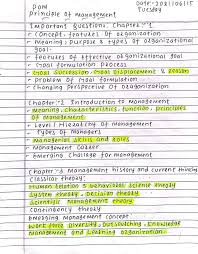 POM
Date:-2021/06/15
Principle of Management
Tuesday
Important Questions: Chapter:-1
• Concept, features of Organization
• Meaning, purpose & types of Organizational Goal.
• features of Effective Organizational Goal
• Goal formulation Process
• Goal Succession, Goal Displacement & Reason
• Problem of Goal formulation
• Changing Perspective of Organization
Chapter:-2 Introduction to Management
• Meaning, characteristics, function, principles of Management
• Level / Hierarchy of Management
• Types of Managers
• Managerial Skills and Roles
• Management Career
• Emerging Challenge for Management
Chapter:-3 Management history and current thinking
Classical theory:
Human relation & behavioral science theory
System theory, Decision theory
Scientific Management theory
Contingency theory
Emerging Management concept
Work force diversity, Outsourcing, Knowledge
Management and Learning Organization.